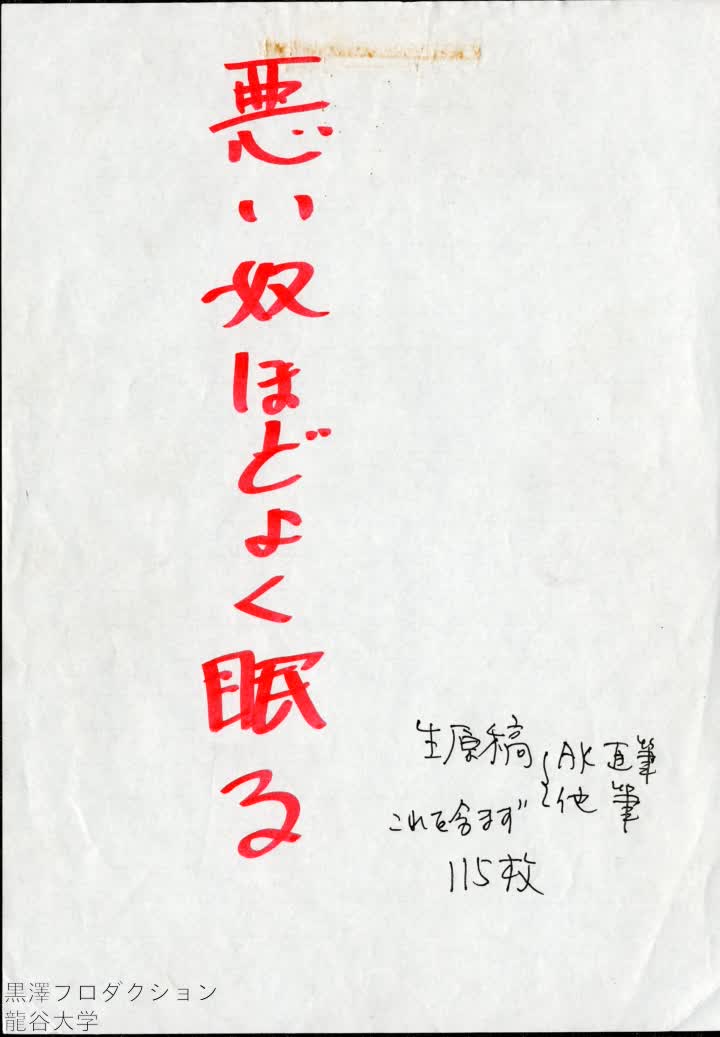 悪い奴ほどよく眠る
生原稿{AK直筆
他筆
これを含まず
115枚
黒澤フロダクション
龍谷大学